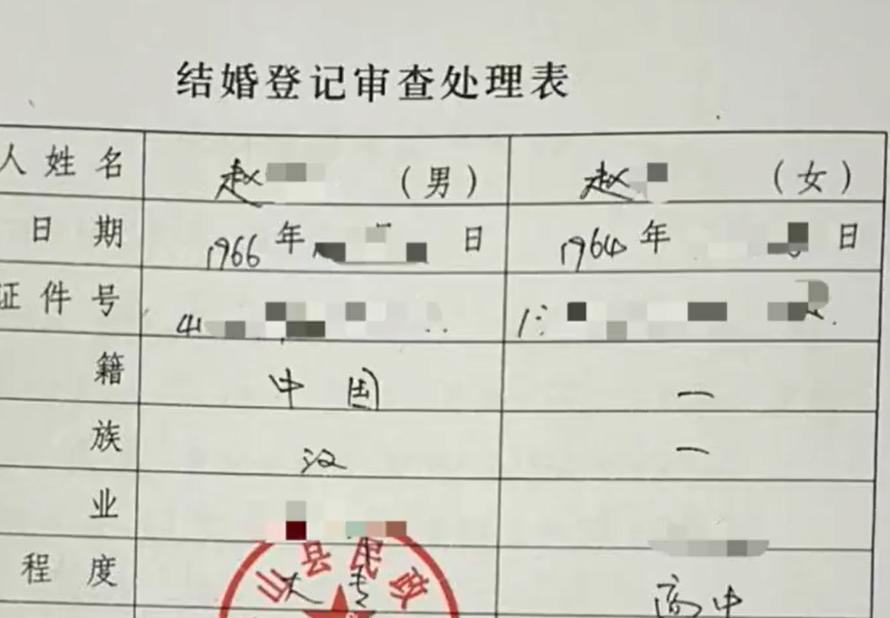 结婚登记审查处理表
人姓名 赵 （男） 赵 （女）
日期 1966年 日 1964年 日
证件号 41 1
籍 中国 一
族 汉 一
业
程度 大专 高中
山县民政